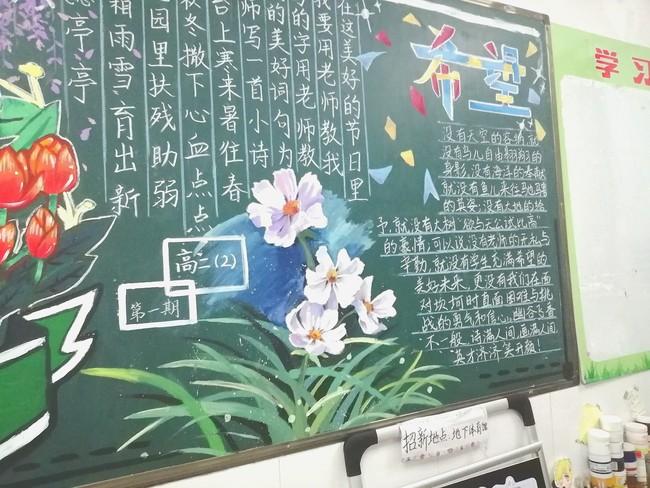 在这美好的节日里
我要用老师教我
的字用老师教
的美好词句为
师写一首小诗
台上寒来暑往春
秋冬撒下心血点点
园里扶残助弱
霜雨雪育出新
亭亭
高二(2)
第一期
希望
没有天空的容纳,就
没有鸟儿自由翱翔的
身影,没有海洋的奉献
就没有鱼儿来往驰骋
的英姿;没有大地的给
予,就没有大树“欲与天公试比高”
的豪情;可以说没有老师的开垦与
辛勤,就没有学生充满希望的
美好未来,更没有我们在面
对坎坷时直面困难与挑
战的勇气和信心。幽谷兮香
不一般,诗满人间,画满人间
英才济济笑开颜!
学习
招新地点:地下体育馆